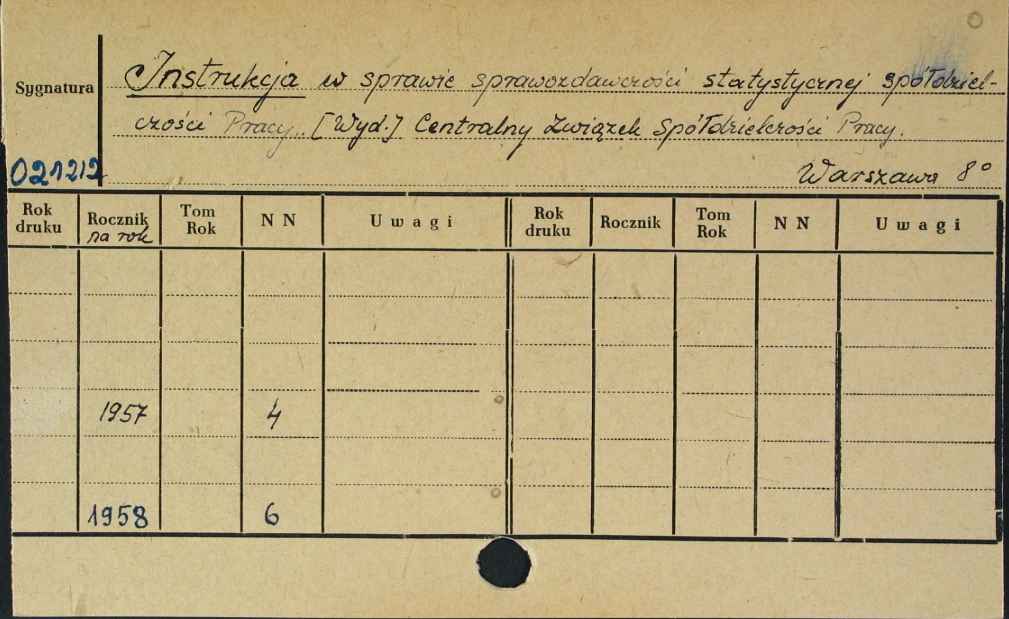 Sygnatura
Instrukcja w sprawie sprawozdawczości statystycznej spółdziel-
czości Pracy. [Wyd.] Centralny Związek Spółdzielczości Pracy.
021212
Warszawa 8°
Rok druku Rocznik na rok Tom Rok N N Uwagi Rok druku Rocznik Tom Rok N N Uwagi
1957 4
1958 6